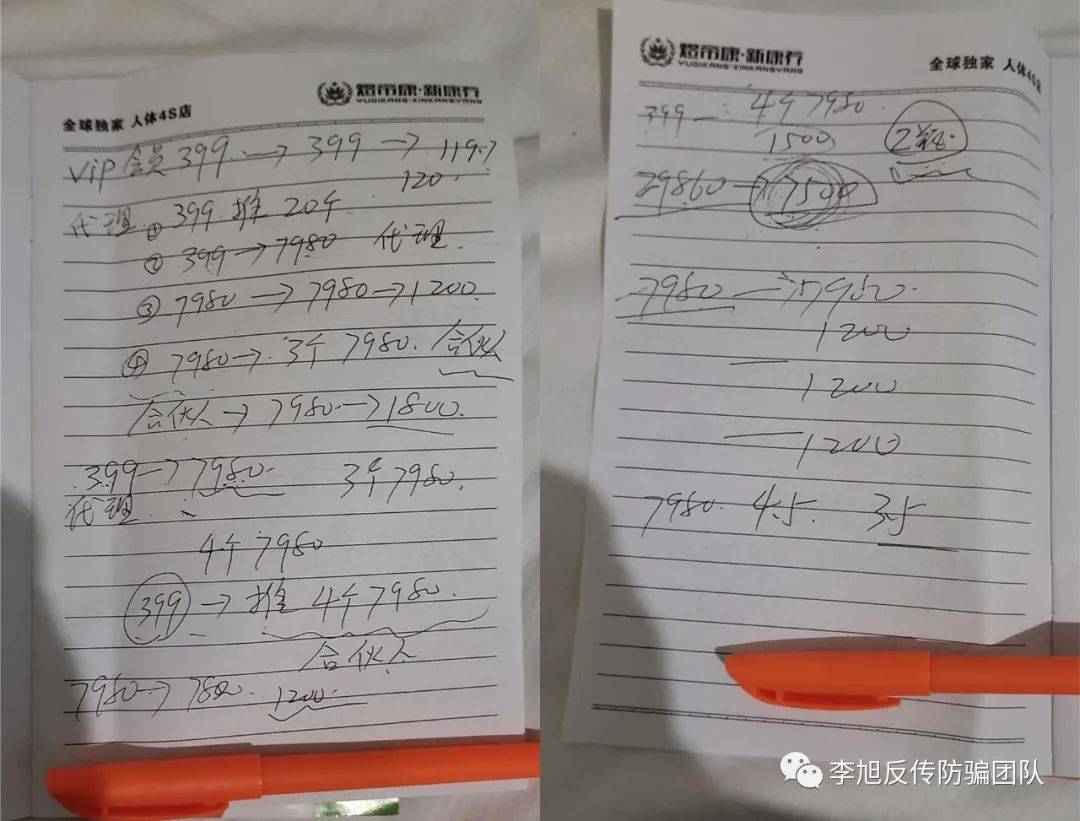 煜帝康·新康养
YUDIKANG·XINKANGYANG
全球独家 人体4S店
Vip 会员 399 → 399 → 119.7
120
代理 ① 399 推 20个
② 399 → 7980 代理
③ 7980 → 7980 → 1200
④ 7980 → 3个 7980. 合伙人
合伙人 → 7980 → 1800.
399 → 7980. 3个7980.
代理
4个7980
399 → 推 4个7980.
合伙人
7980 → 7800. 1200.
煜帝康·新康养
YUDIKANG·XINKANGYANG
全球独家 人体4S店
399 — 4个7980
1500
29860 → 7500
7980 → 7980.
1200
1200
1200
7980. 4.5. 3.5
李旭反传防骗团队